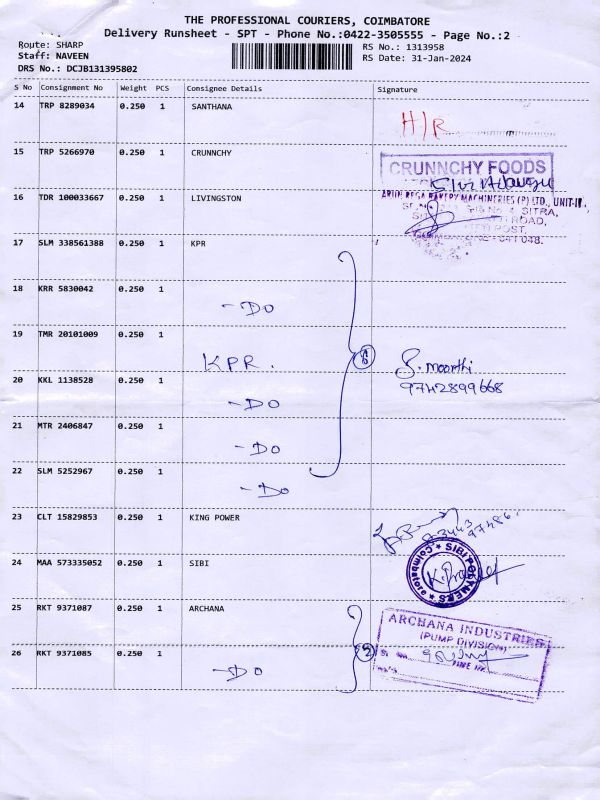 THE PROFESSIONAL COURIERS, COIMBATORE
Delivery Runsheet - SPT - Phone No.:0422-3505555 - Page No.:2
Route: SHARP
RS No.: 1313958
Staff: NAVEEN
RS Date: 31-Jan-2024
DRS No.: DCJB131395802
S No Consignment No Weight PCS Consignee Details Signature
14 TRP 8289034 0.250 1 SANTHANA
H/R
15 TRP 5266970 0.250 1 CRUNNCHY
CRUNNCHY FOODS
16 TDR 100033667 0.250 1 LIVINGSTON
BAKERY MACHINERIES (P) LTD., UNIT-II,
SITRA,
ROAD,
POST,
641 048.
17 SLM 338561388 0.250 1 KPR
18 KRR 5830042 0.250 1
- DO
19 TMR 20101009 0.250 1
KPR.
6
S. moorthi
9742899668
20 KKL 1138528 0.250 1
- DO
21 MTR 2406847 0.250 1
- DO
22 SLM 5252967 0.250 1
- DO
23 CLT 15829853 0.250 1 KING POWER
24 MAA 573335052 0.250 1 SIBI
SIBI POLYMERS
Coimbatore
25 RKT 9371087 0.250 1 ARCHANA
ARCHANA INDUSTRIES
(PUMP DIVISION)
26 RKT 9371085 0.250 1
2
- DO